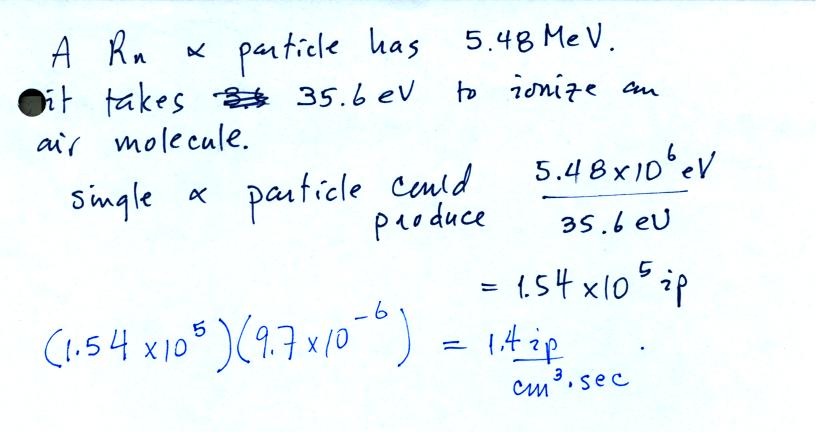 A Rn α particle has 5.48 MeV.
it takes 35.6 eV to ionize an
air molecule.
single α particle could produce 5.48 x 10⁶ eV / 35.6 eV
= 1.54 x 10⁵ ip
(1.54 x 10⁵)(9.7 x 10⁻⁶) = 1.4 ip / cm³·sec